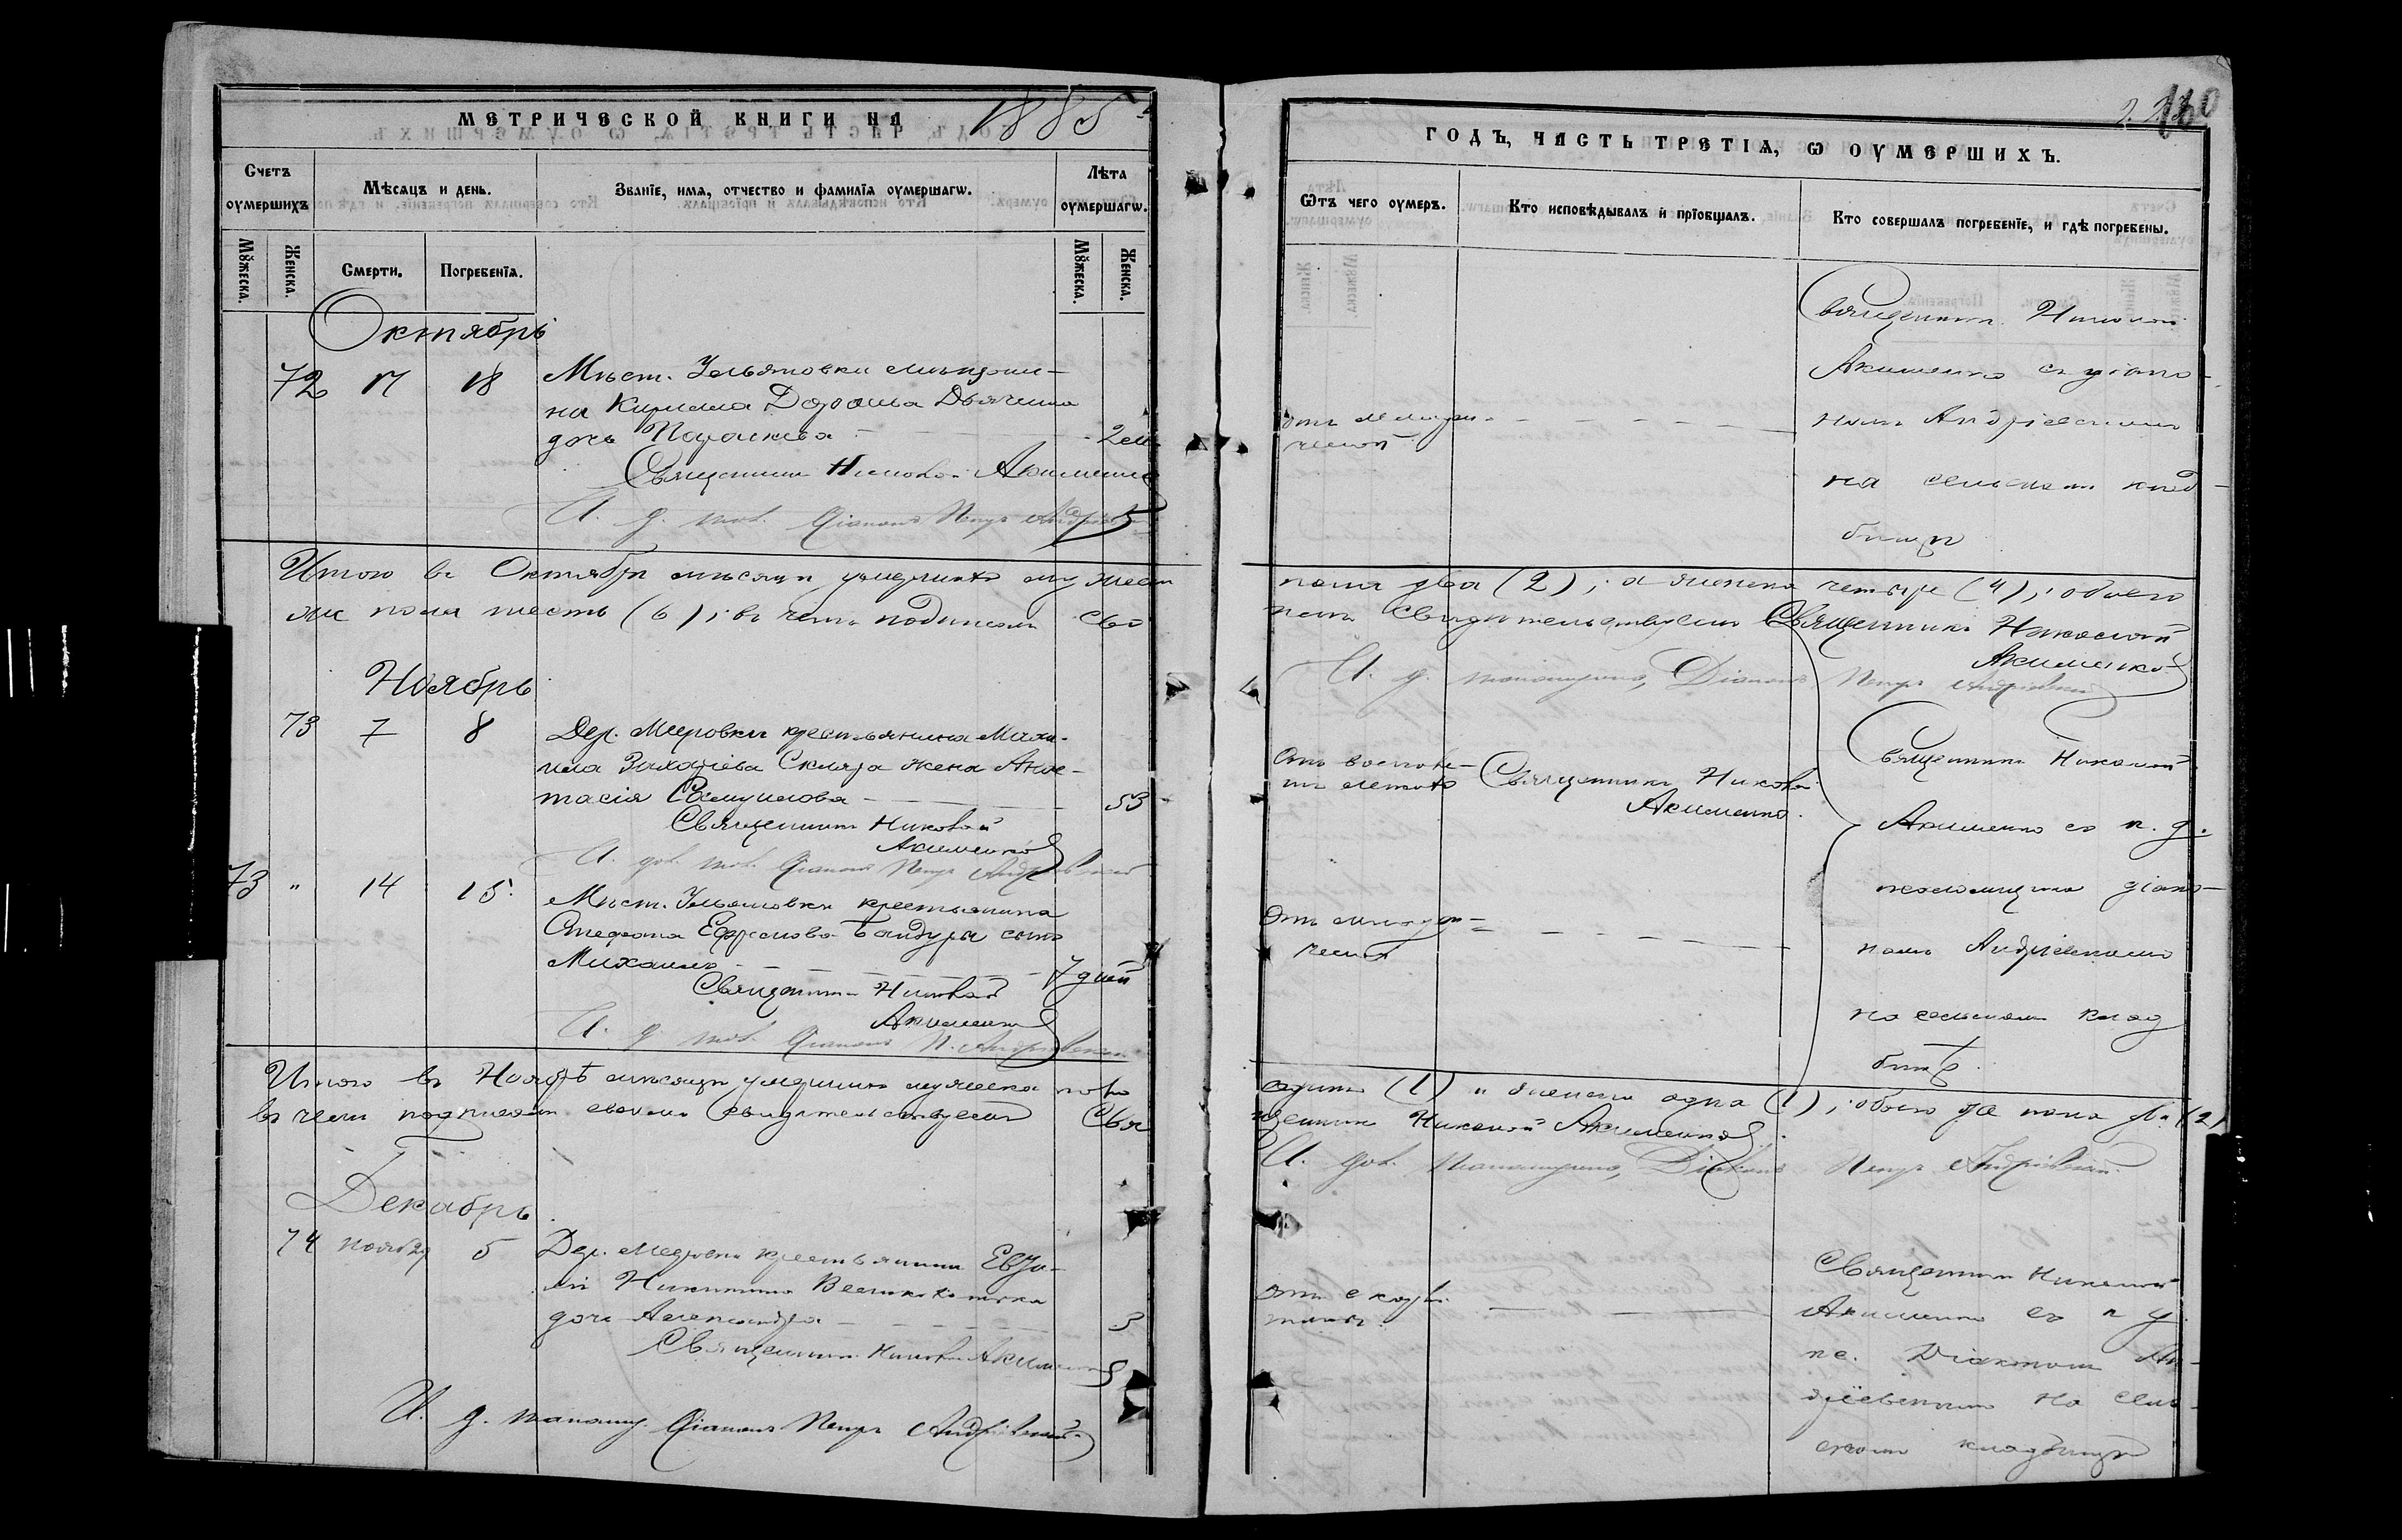 МЕТРИЧЕСКОЙ КНИГИ НА 1885
Счетъ оумершихъ
Мѣсяцъ и день.
Званїе, имѧ, отчество и фамилїѧ оумершагѡ.
Лѣта оумершагѡ.
Мꙋжеска.
Женска.
Смерти.
Погребенїѧ.
Мꙋжеска.
Женска.
Октябрь
72 17 18 Мѣст. Ульяновки мѣщани-
на Кирилла Дороша Двоячена
дочь Параскева 2 м.
Священникъ Николай Акименко
И. д. псал. Діаконъ Петръ Андріевскій
Итого въ Октябрѣ мѣсяцѣ умершихъ мужеска
же пола шесть (6); въ чемъ подписомъ сво
Ноябрь
73 7 8 Дер. Меировки крестьянина Миха-
ила Захаріева Скляра жена Анас-
тасія Самуилова 53
Священникъ Николай
Акименко
И. дол. псал. Діаконъ Петръ Андріевскій
73 " 14 15. Мѣст. Ульяновки крестьянина
Стефана Ефремова Бандуры сынъ
Михаилъ 7 дней
Священникъ Николай
Акименко
И. д. псал. Діаконъ П. Андріевскій
Итого въ Ноябрѣ мѣсяцѣ умершихъ мужеска пола
въ чемъ подписомъ своимъ свидѣтельствуемъ Свя
Декабрь
74 ноябр 29 5 Дер. крестьянина
Никитина
дочь Александра 3
Священникъ Николай Акименко
И. д. псаломщ. Діаконъ Петръ Андріевскій
160
ГОДЪ, ЧАСТЬ ТРЕТІѦ, Ѡ ОУМЕРШИХЪ.
Ѿтъ чего оумеръ.
Кто исповѣдывалъ и прїобщалъ.
Кто совершалъ погребенїе, и гдѣ погребены.
Священникъ Николай
Акименко съ діако-
номъ Андріевскимъ
на сельскомъ клад-
бищѣ
отъ младен-
ческой
пола два (2); а женска четыре (4); обоего
имъ свидѣтельствуемъ Священникъ Николай
Акименко
И. д. псаломщика, Діаконъ Петръ Андріевскій
Отъ воспале-
нія легкихъ
Священникъ Николай
Акименко.
Священникъ Николай
Акименко съ и. д.
псаломщика діако-
номъ Андріевскимъ
на сельскомъ клад
бищѣ.
Отъ младен-
ческой
одинъ (1) и женска одна (1); обоего же пола два (2)
щенникъ Николай Акименко
И. дол. псаломщика, Діаконъ Петръ Андріевскій.
отъ скарла-
тины.
Священникъ Николай
Акименко съ и. д.
пс. Діакономъ Ан-
дріевскимъ на сель-
скомъ кладбищѣ